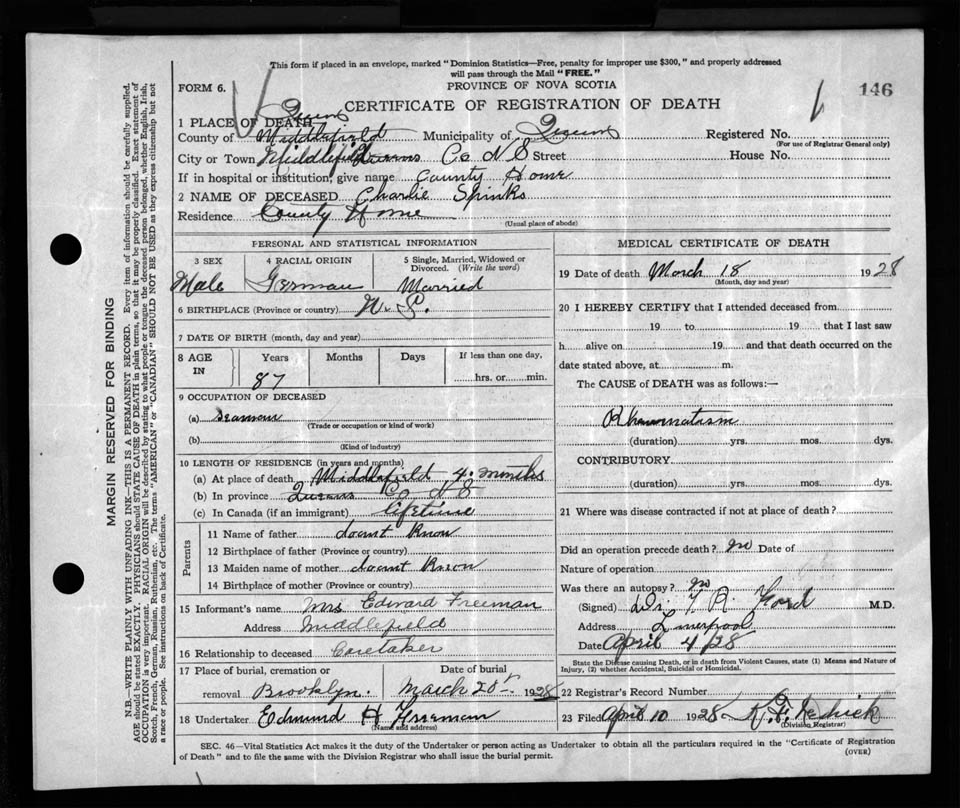 This form if placed in an envelope, marked "Dominion Statistics—Free, penalty for improper use $300," and properly addressed
will pass through the Mail "FREE."
FORM 6.
PROVINCE OF NOVA SCOTIA
146
CERTIFICATE OF REGISTRATION OF DEATH
1 PLACE OF DEATH Queens
County of Middlefield Municipality of Queens Registered No.
(For use of Registrar General only)
City or Town Middlefield Queens Co N S Street House No.
If in hospital or institution, give name County Home
2 NAME OF DECEASED Charlie Spinks
Residence County Home
(Usual place of abode)
PERSONAL AND STATISTICAL INFORMATION
3 SEX
Male
4 RACIAL ORIGIN
German
5 Single, Married, Widowed or Divorced. (Write the word)
Married
6 BIRTHPLACE (Province or country) N. S.
7 DATE OF BIRTH (month, day and year)
8 AGE IN Years Months Days If less than one day,
87 hrs. or min.
9 OCCUPATION OF DECEASED
(a) Seaman
(Trade or occupation or kind of work)
(b)
(Kind of industry)
10 LENGTH OF RESIDENCE (in years and months)
(a) At place of death Middlefield 4 months
(b) In province Queens Co N S
(c) In Canada (if an immigrant) lifetime
Parents
11 Name of father dount Know
12 Birthplace of father (Province or country)
13 Maiden name of mother dount Know
14 Birthplace of mother (Province or country)
15 Informant's name Mrs Edward Freeman
Address Middlefield
16 Relationship to deceased Caretaker
17 Place of burial, cremation or removal Brooklyn.
Date of burial March 20 1928
18 Undertaker Edmund H Freeman
(Name and address)
MEDICAL CERTIFICATE OF DEATH
19 Date of death March 18 1928
(Month, day and year)
20 I HEREBY CERTIFY that I attended deceased from
19 to 19 that I last saw
h alive on 19 and that death occurred on the
date stated above, at m.
The CAUSE of DEATH was as follows:—
Rheumatism
(duration) yrs. mos. dys.
CONTRIBUTORY.
(duration) yrs. mos. dys.
21 Where was disease contracted if not at place of death?
Did an operation precede death? no Date of
Nature of operation
Was there an autopsy? no
(Signed) Dr. R. Ford M.D.
Address Liverpool
Date April 4/28
State the Disease causing Death, or in death from Violent Causes, state (1) Means and Nature of Injury, (2) whether Accidental, Suicidal or Homicidal.
22 Registrar's Record Number
23 Filed April 10 1928
(Division Registrar)
SEC. 46—Vital Statistics Act makes it the duty of the Undertaker or person acting as Undertaker to obtain all the particulars required in the "Certificate of Registration
of Death" and to file the same with the Division Registrar who shall issue the burial permit. (OVER)
MARGIN RESERVED FOR BINDING
N.B.—WRITE PLAINLY WITH UNFADING INK—THIS IS A PERMANENT RECORD. Every item of information should be carefully supplied.
AGE should be stated EXACTLY. PHYSICIANS should STATE CAUSE OF DEATH in plain terms, so that it may be properly classified. Exact statement of
OCCUPATION is very important. RACIAL ORIGIN will be described by stating to what people or tongue the deceased person belonged, whether English, Irish,
Scotch, French, German, Russian, Ruthenian, etc. The terms "AMERICAN" or "CANADIAN" SHOULD NOT BE USED as they express citizenship but not
a race or people. See instructions on back of Certificate.